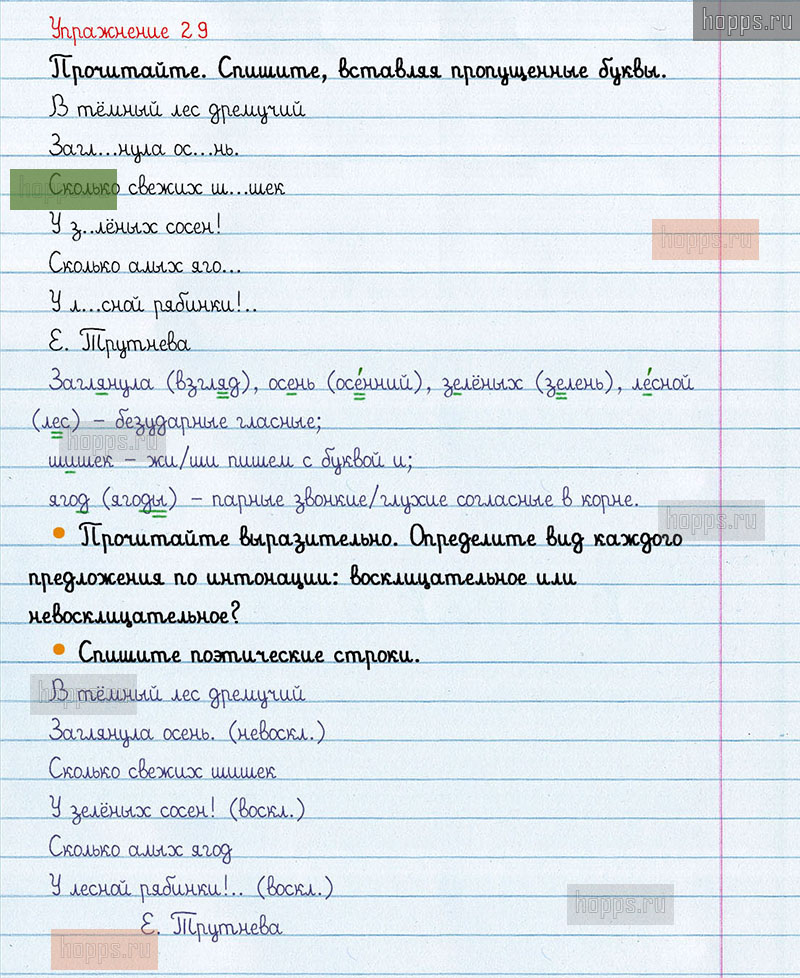 hopps.ru
Упражнение 29
Прочитайте. Спишите, вставляя пропущенные буквы.
В тёмный лес дремучий
Загл...нула ос...нь.
hopps.ru
Сколько свежих ш...шек
У з..лёных сосен!
hopps.ru
Сколько алых яго...
У л...сной рябинки!..
Е. Трутнева
Заглянула (взгляд), осень (осе́нний), зелёных (зелень), ле́сной
(лес) – безударные гласные;
hopps.ru
шишек – жи/ши пишем с буквой и;
ягод (ягоды) – парные звонкие/глухие согласные в корне.
hopps.ru
• Прочитайте выразительно. Определите вид каждого
предложения по интонации: восклицательное или
невосклицательное?
• Спишите поэтические строки.
hopps.ru
В тёмный лес дремучий
Заглянула осень. (невоскл.)
Сколько свежих шишек
У зелёных сосен! (воскл.)
Сколько алых ягод
У лесной рябинки!.. (воскл.)
hopps.ru
Е. Трутнева
hopps.ru